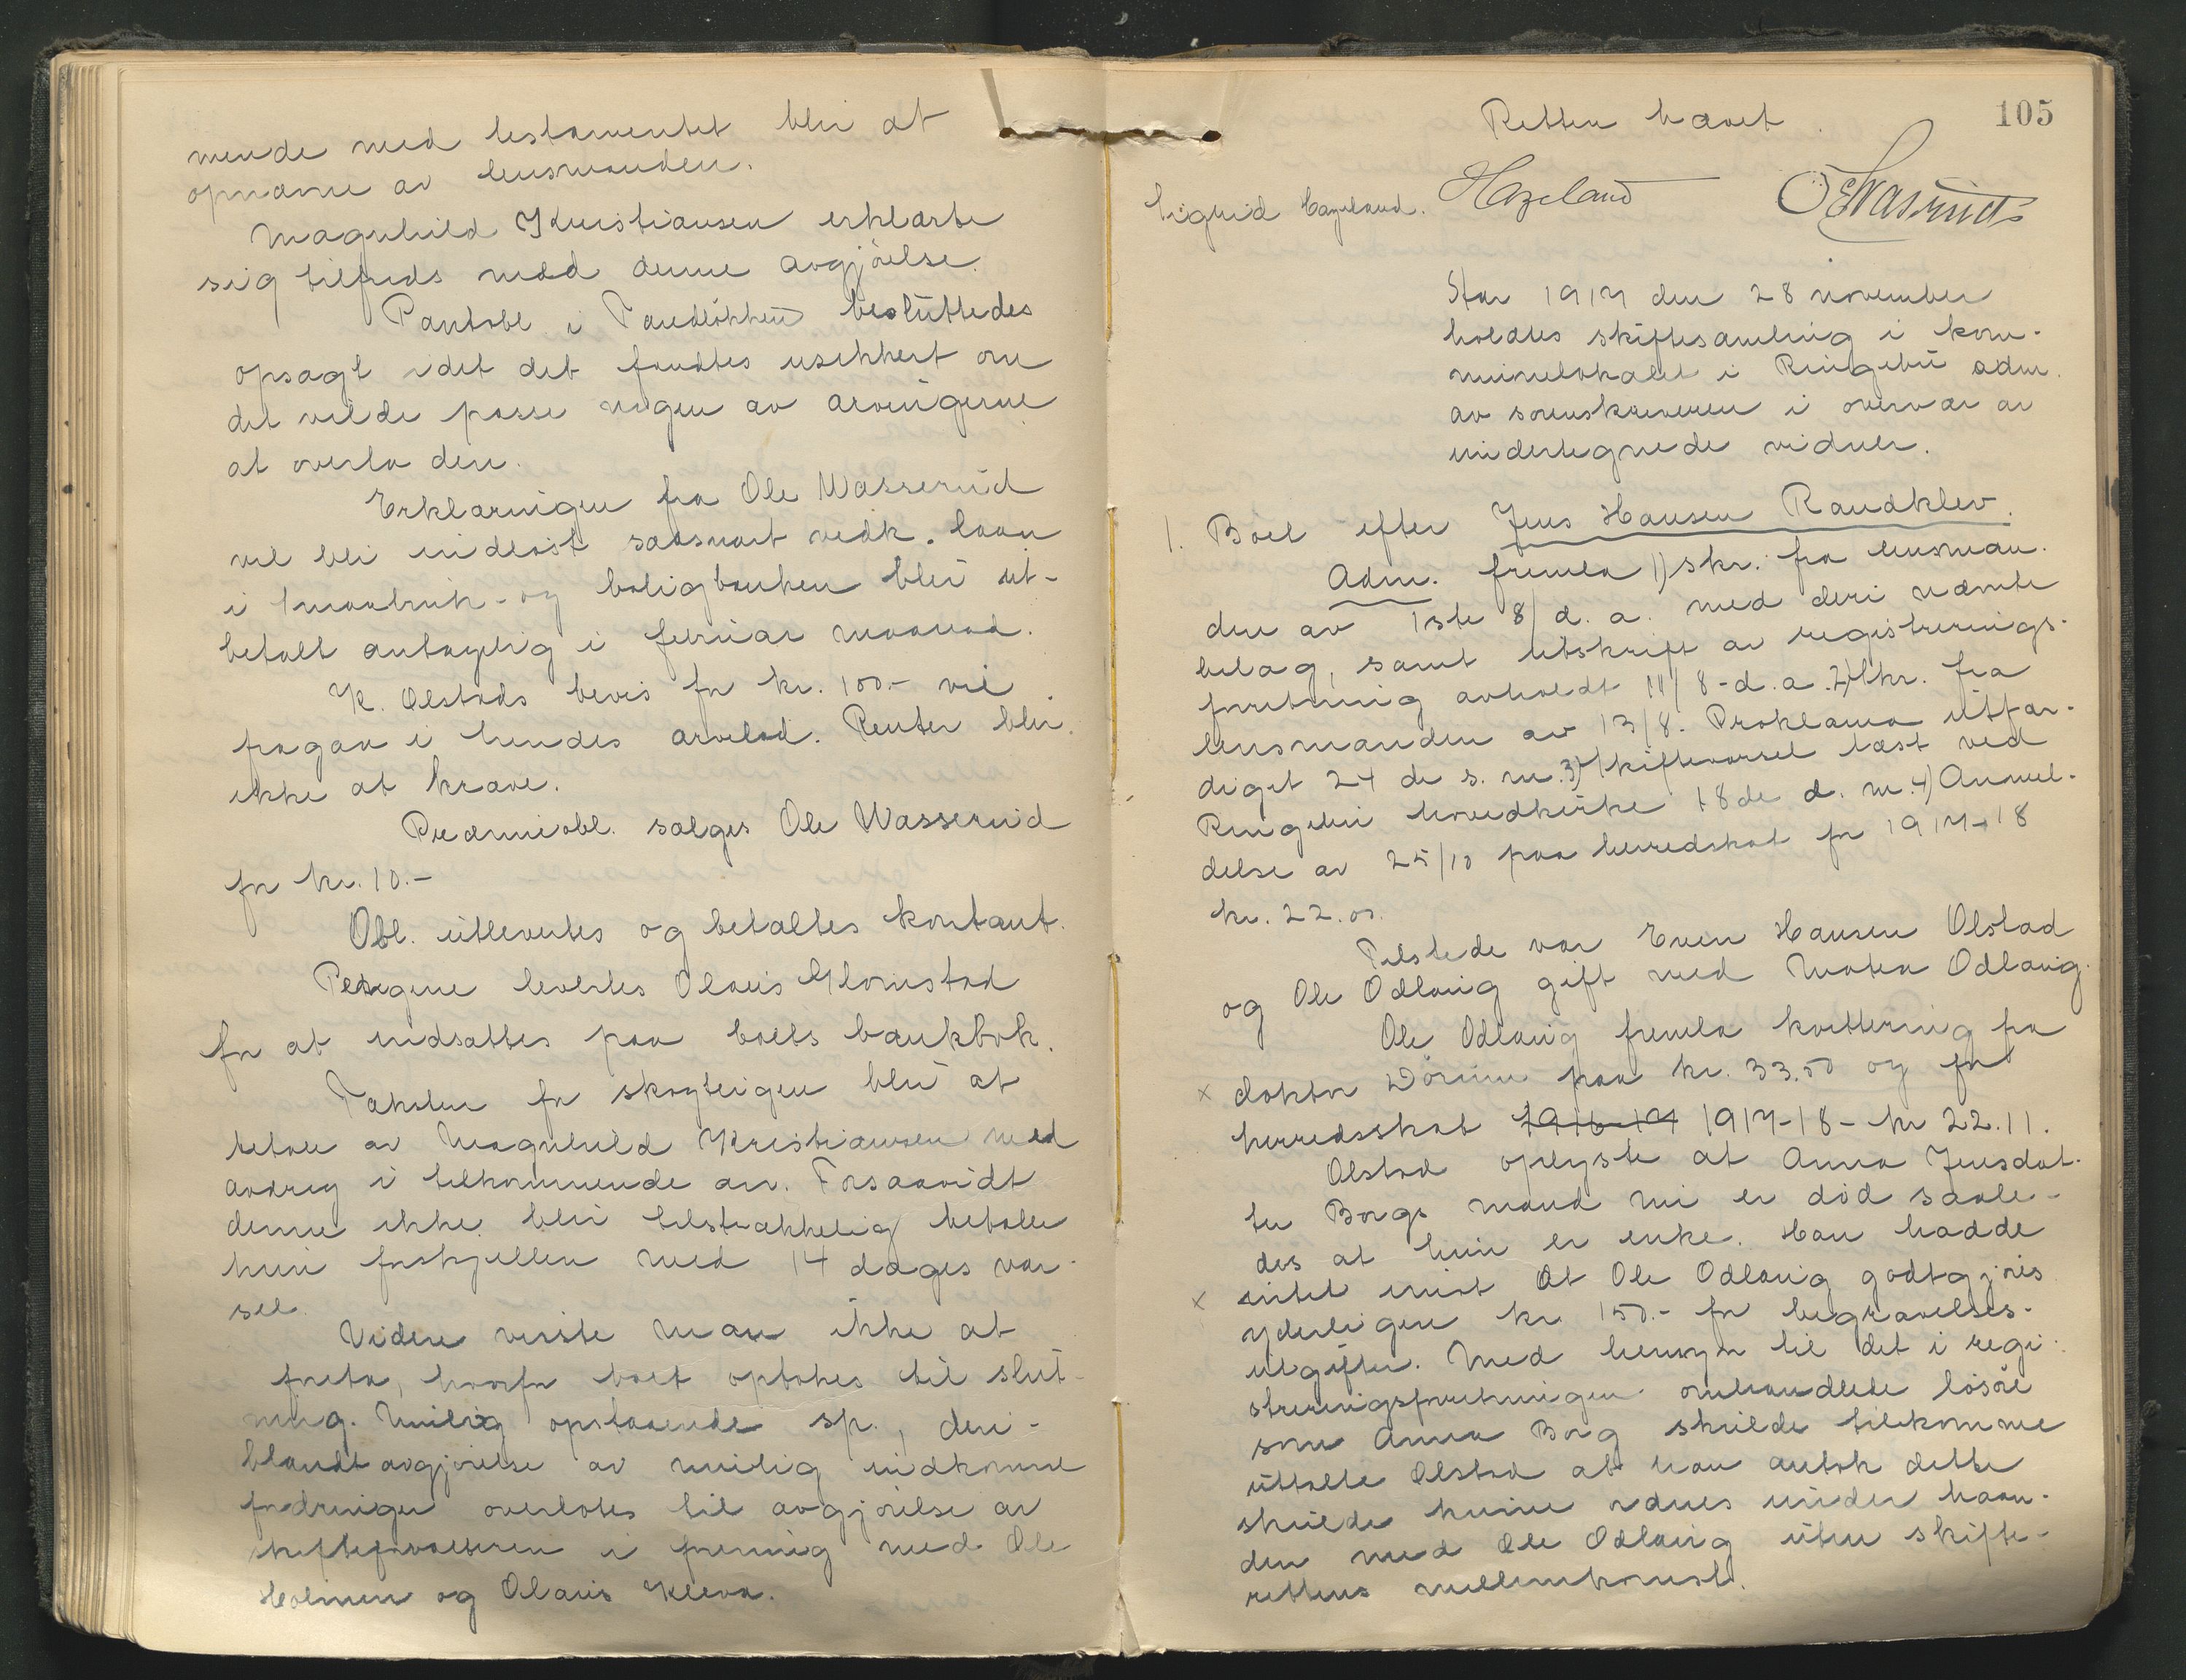 mende med testamentet blir at
opnævne av lensmanden.
Magnhild Kristiansen erklærte
sig tilfreds med denne avgjörelse.
Pantobl. i besluttedes
opsagt idet det fandtes usikkert om
det vilde passe nogen av arvingerne
at overta den.
Erklæringen fra Ole Wasserud
vil bli indlöst saasnart vedk. laan
i Smaabruk- og boligbanken blir ut-
betalt antagelig i februar maaned.
K. Olstads bevis for kr. 100.- vil
fragaa i hendes arvelod. Renter blir
ikke at kræve.
Præmieobl. sælges Ole Wasserud
for kr. 10.-
Obl. utlevertes og betaltes kontant.
Pengene levertes Olaus Glomstad
for at indsættes paa boets bankbok.
Taksten for skogteigen blir at
betale av Magnhild Kristiansen med
avdrag i tilkommende arv. Forsaavidt
denne ikke blir tilstrækkelig betaler
hun forskjellen med 14 dages var-
sel.
Videre visste man ikke at
foreta, hvorfor boet optokes til slut-
ning. Mulig opstaaende sp., deri-
blandt avgjörelse av mulig indkomne
fordringer overlotes til avgjörelse av
skifteforvalteren i forening med Ole
Holmen og Olaus Kleva.
105
Retten hævet.
Sigrid Hazeland. Hazeland O Wasrud
Aar 1917 den 28 november
holdtes skiftesamling i kom-
munelokalet i Ringebu adm.
av sorenskriveren i overvær av
undertegnede vidner.
1. Boet efter Jens Hansen Randklev.
Adm. fremla 1) skr. fra lensman-
den av 1ste 8/ d. a. med deri nævnte
bilag, samt utskrift av registrerings-
forretning avholdt 11/8 - d. a. 2) Skr. fra
lensmanden av 13/8. Proklama utfær-
diget 24 de s. m. 3) Skiftevarsel læst ved
Ringebu hovedkirke 18de d. m. 4) Anmel-
delse av 25/10 paa herredskat for 1917-18
kr. 22.00.
Tilstede var Even Hansen Olstad
og Ole Odlaug gift med Maten Odlaug.
Ole Odlaug fremla kvittering fra
x doktor paa kr. 33.50 og for
herredsskat 1916-17 1917-18 - kr 22.11.
Olstad oplyste at Anna Jensdat-
ter Borgs mand nu er död saale-
des at hun er enke. Han hadde
x intet imot at Ole Odlaug godtgjöres
yderligere kr 150.- for begravelses-
utgifter. Med hensyn til det i regi-
streringsforretningen omhandlede lösöre
som Anna Borg skulde tilkomme
uttalte Olstad at han antok dette
skulde kunne ordnes under haan-
den med Ole Odlaug uten skifte-
rettens mellemkomst.